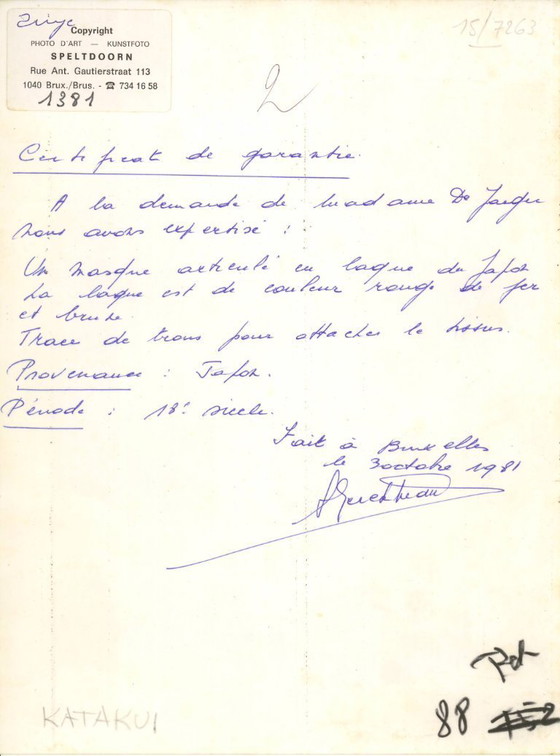 Copyright
15/7263
PHOTO D'ART — KUNSTFOTO
SPELTDOORN
Rue Ant. Gautierstraat 113
1040 Brux./Brus. - ☎ 734 16 58
1381
2
Certificat de garantie.
A la demande de Madame De Jaeger
nous avons expertisé :
Un masque articulé en laque du Japon
La laque est de couleur rouge de fer
et brune.
Trace de trous pour attacher le tissus.
Provenance : Japon.
Période : 18e siècle.
Fait à Bruxelles
le 3 octobre 1981
88
KATAKUI